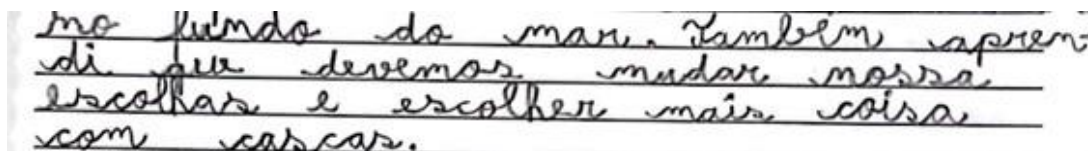 no fundo do mar. Também apren-
di que devemos mudar nossa
escolhas e escolher mais coisa
com cascas.